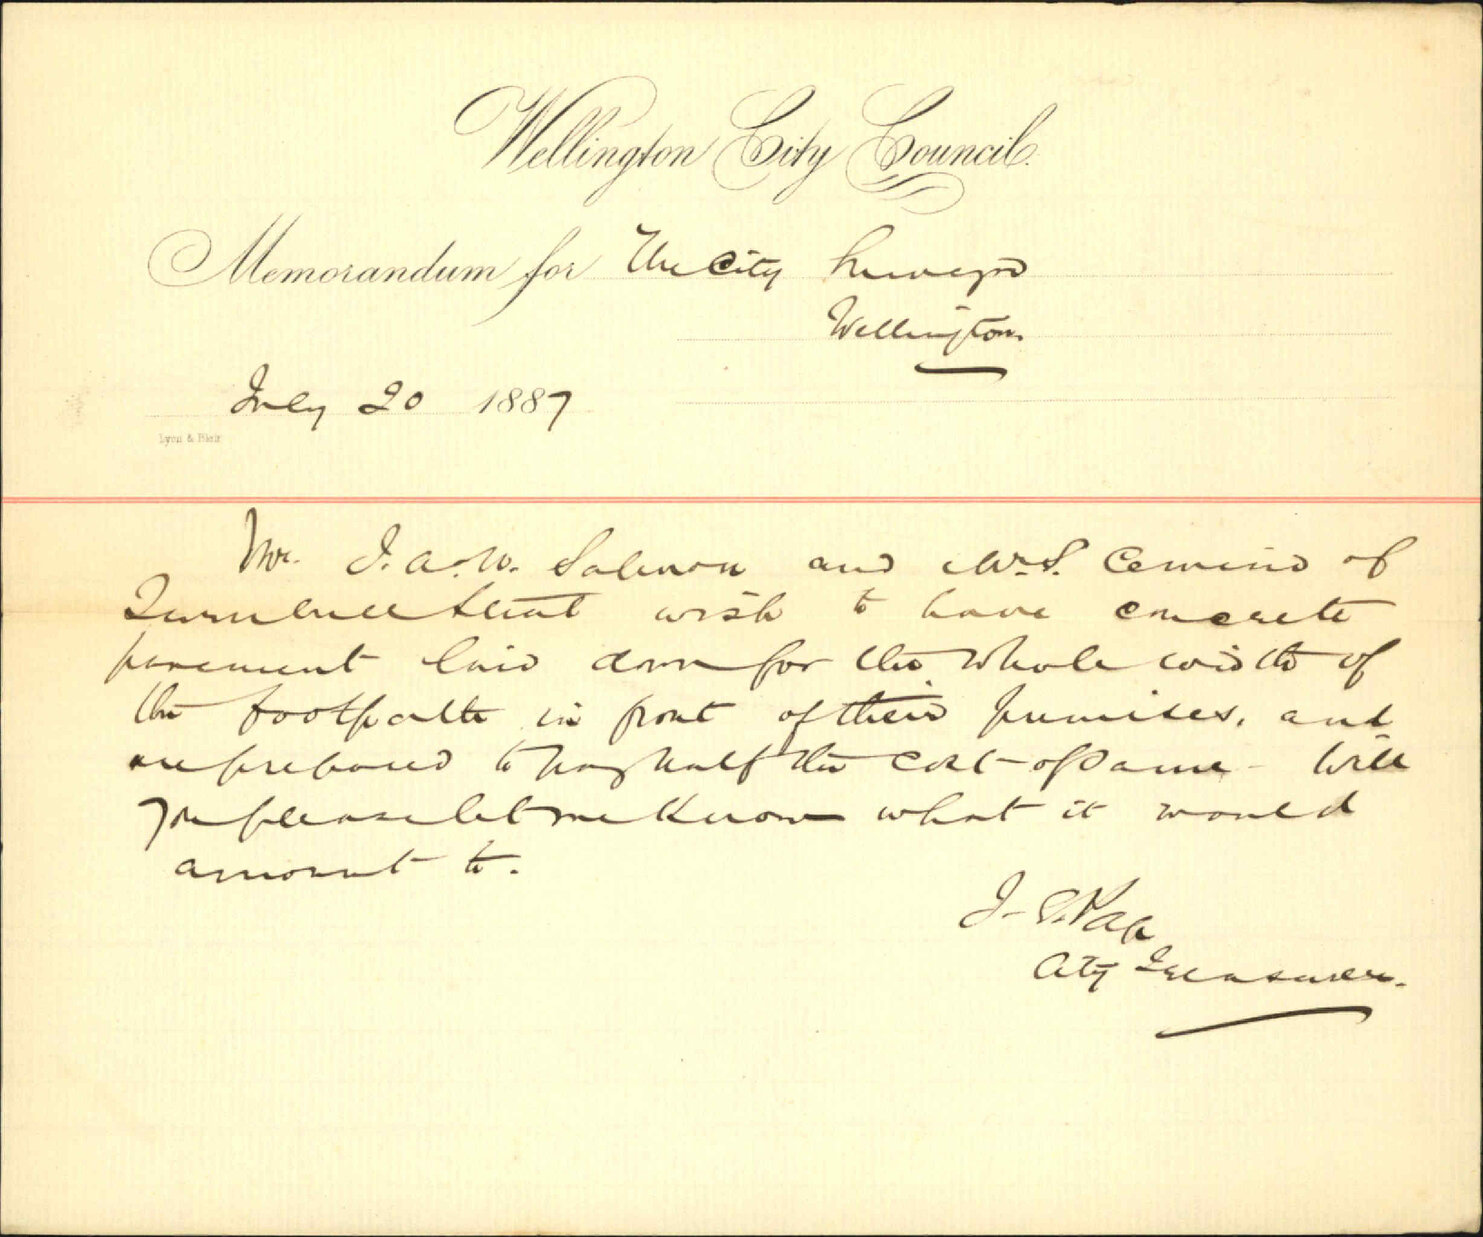 Wellington City Council.
Memorandum for The City Surveyor
Wellington
July 20 1887
Lyon & Blair
Mr. J. A. W. Salmon and Mr. S. of
Turnbull Street wish to have concrete
pavement laid down for the whole width of
the footpath in front of their premises, and
are prepared to pay half the cost of same - Will
you please let me know what it would
amount to.
J. Page
City Treasurer.